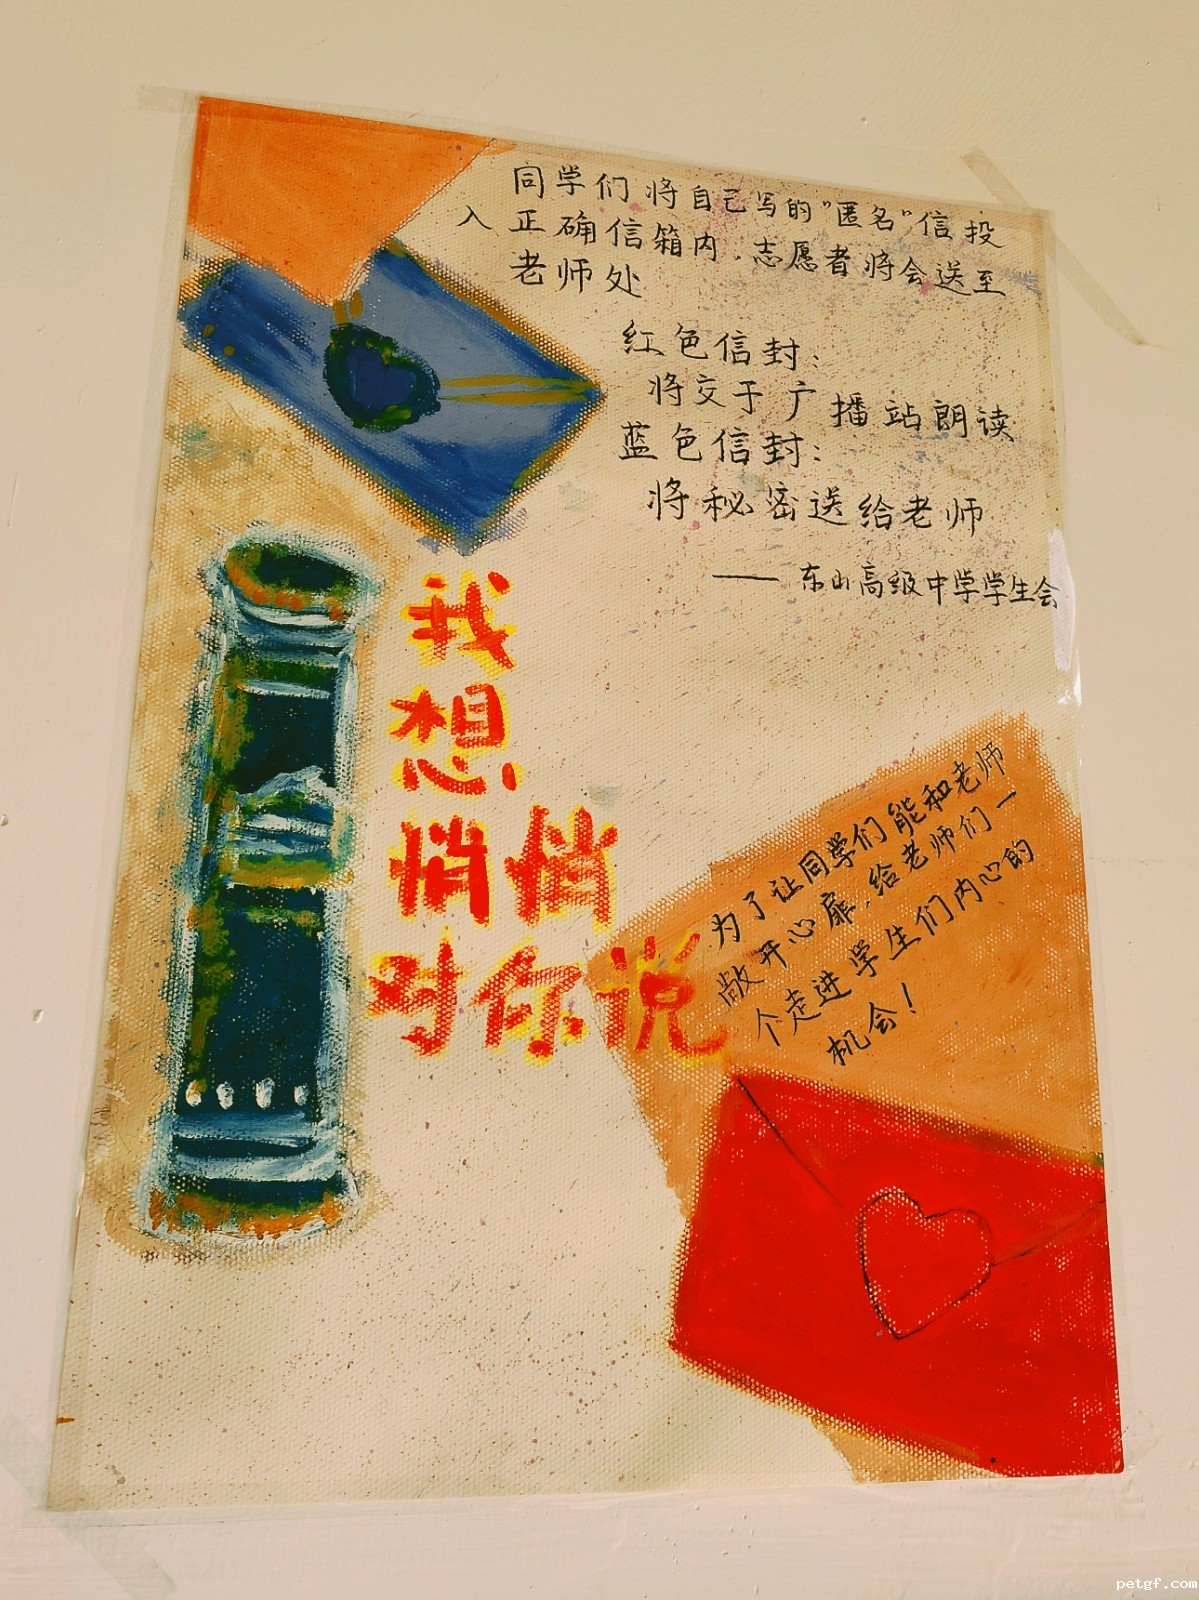 同学们将自己写的"匿名"信投
入正确信箱内,志愿者将会送至
老师处
红色信封:
将交于广播站朗读
蓝色信封:
将秘密送给老师
——东山高级中学学生会
我
想
悄悄
对你说
为了让同学们能和老师
敞开心扉,给老师们一
个走进学生们内心的
机会!
petgf.com